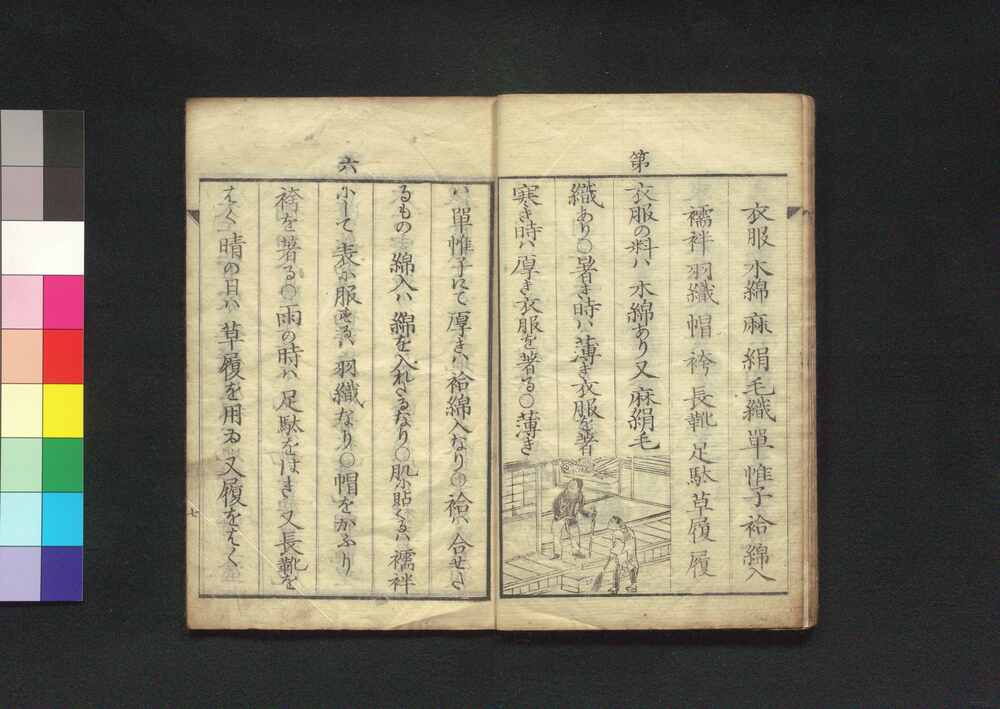 第六
衣服 木綿 麻 絹 毛織 單 帷子 袷 綿入
襦袢 羽織 帽 袴 長靴 足駄 草履 履
衣服の料ハ木綿あり又麻絹毛
織あり〇暑き時ハ薄き衣服を著
寒き時ハ厚き衣服を著る〇薄き
ハ單帷子にて厚きハ袷綿入なり〇袷ハ合せたる
るもの綿入ハ綿を入れたるなり〇肌に貼くるハ襦袢
にして表に服するハ羽織なり〇帽をかぶり
袴を著る〇雨の時ハ足駄をはき又長靴を
はく晴の日ハ草履を用ゐ又履をはく
七